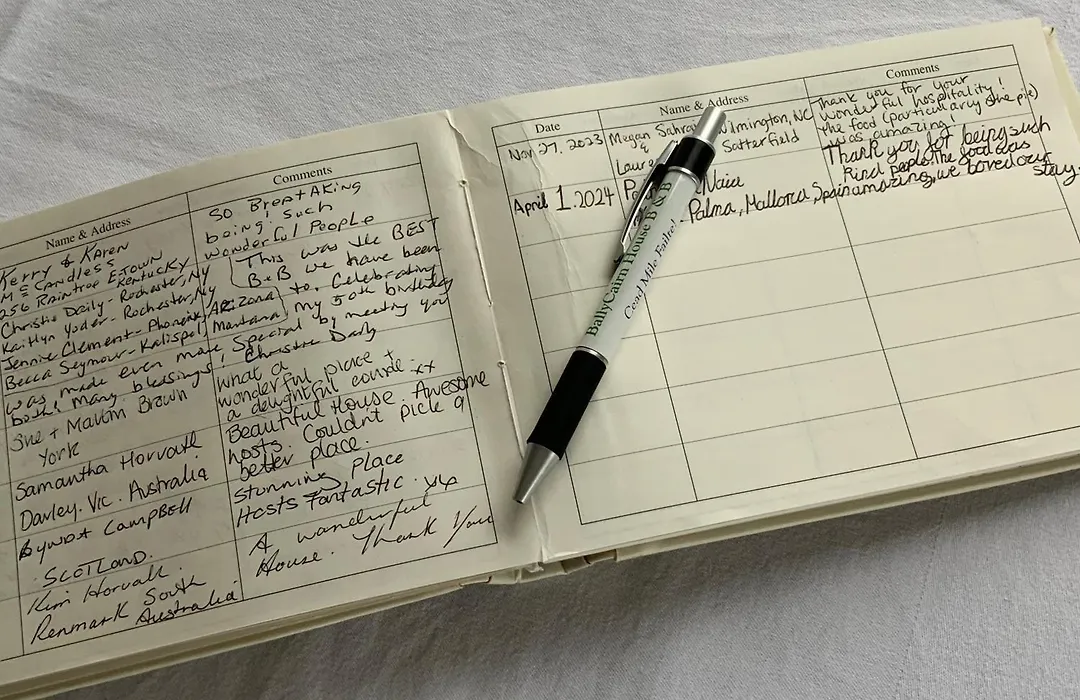 Name & Address
Comments
Kerry & Karen
McCandless
256 Raintree E-TOWN
Kentucky
Christie Daily - Rochester, NY
Kaitlyn Yoder - Rochester, NY
Jennie Clement - Phoenix, Arizona
Becca Seymour - Kalispel, Montana
SO BreptAking
being such
wonderful People
This was the BEST
B+B we have been
to. Celebrating
my 50th birthday
was made even more special by meeting you
both! Many blessings! Christie Daily
Sue + Malvin Brown
York
what a
wonderful place +
a delightful xx
Samantha Horvath
Darley. Vic. Australia
Beautiful House. Awesome
hosts. Couldn't pick a
better place.
CAMPBELL
SCOTLAND.
stunning Place
Hosts Fantastic. xx
Kim Horvath.
Renmark South
Australia
A wonderful
House. Thank You
Date
Name & Address
Comments
Nov 27, 2023
Megan Wilmington, NC
&
Satterfield
Thank you for your
wonderful hospitality!
the food (particularly the pie)
was amazing!
April 1. 2024
Palma, Mallorca, Spain
Thank you fot being such
kind peple, the food was
amazing, we loved our
stay.
BallyCairn House B & B
Cead Mile Failte!